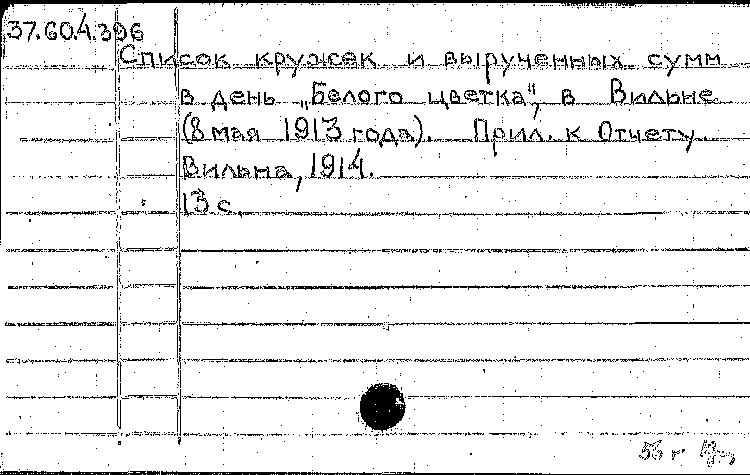 37.60.4.396
Список кружек и вырученных сумм
в день „Белого цветка", в Вильне
(8 мая 1913 года). Прил. к Отчету.
Вильна, 1914.
13 с.
56 г